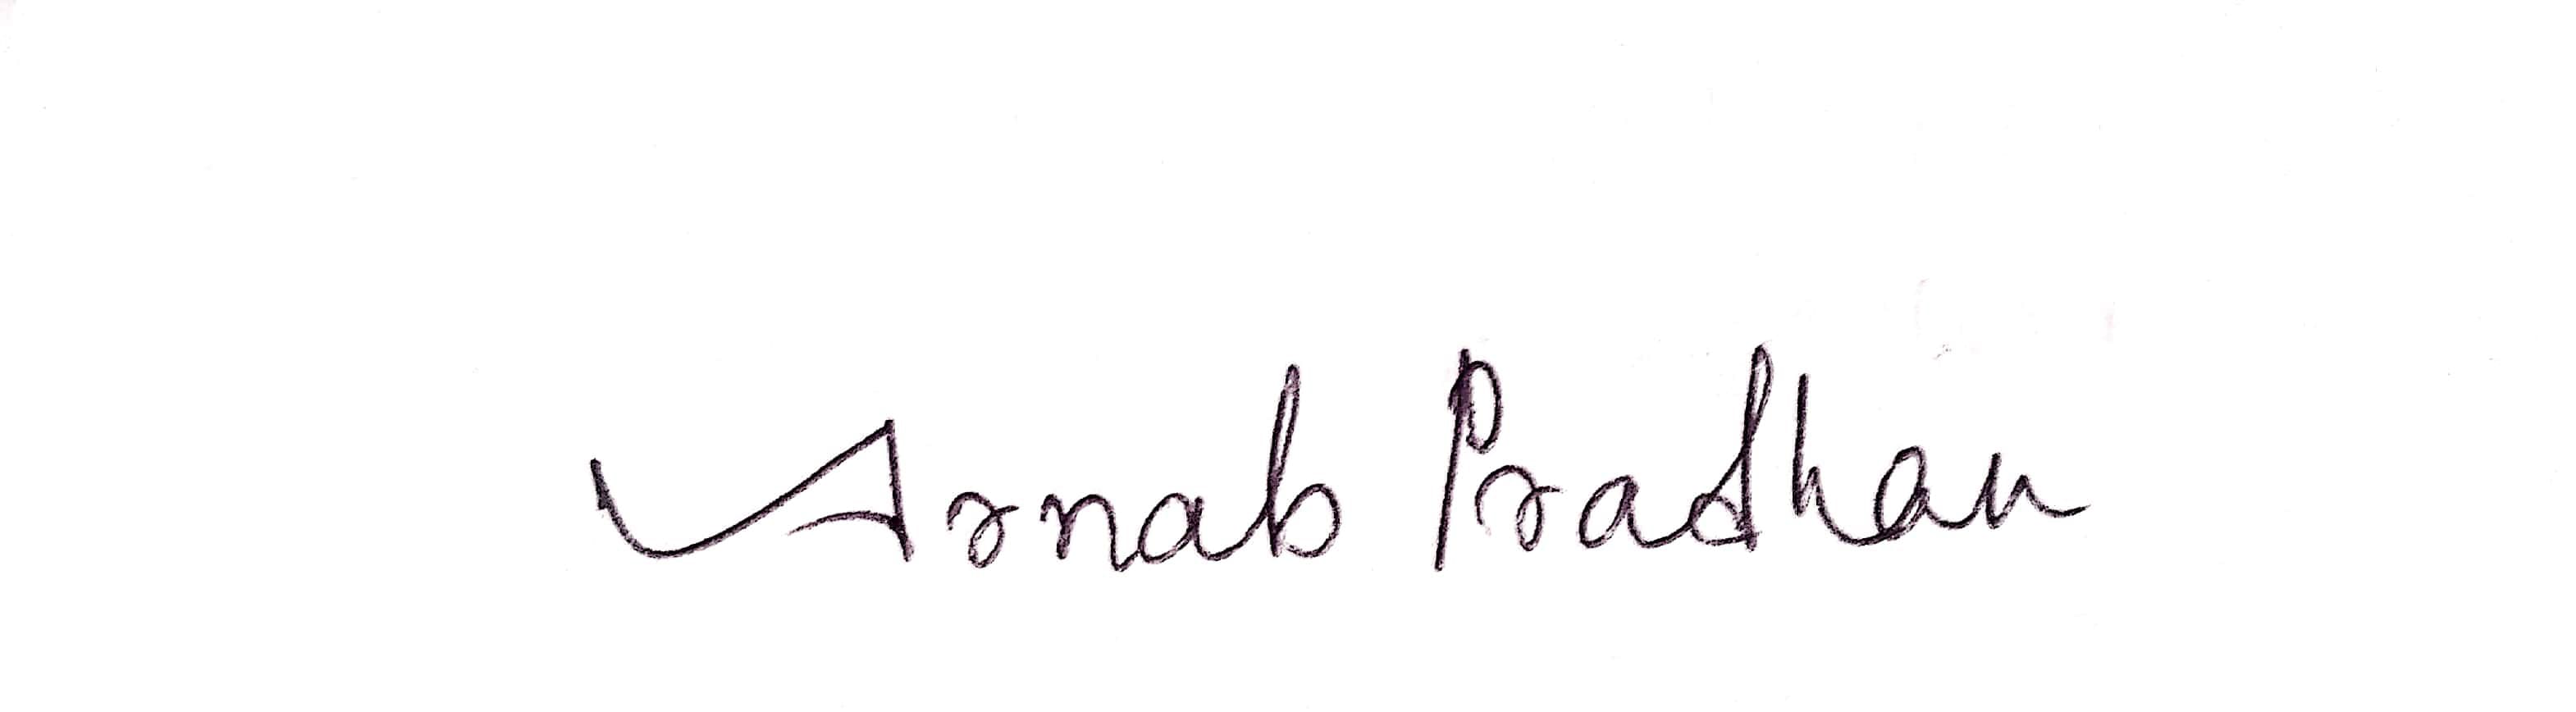 Arnab Pradhan